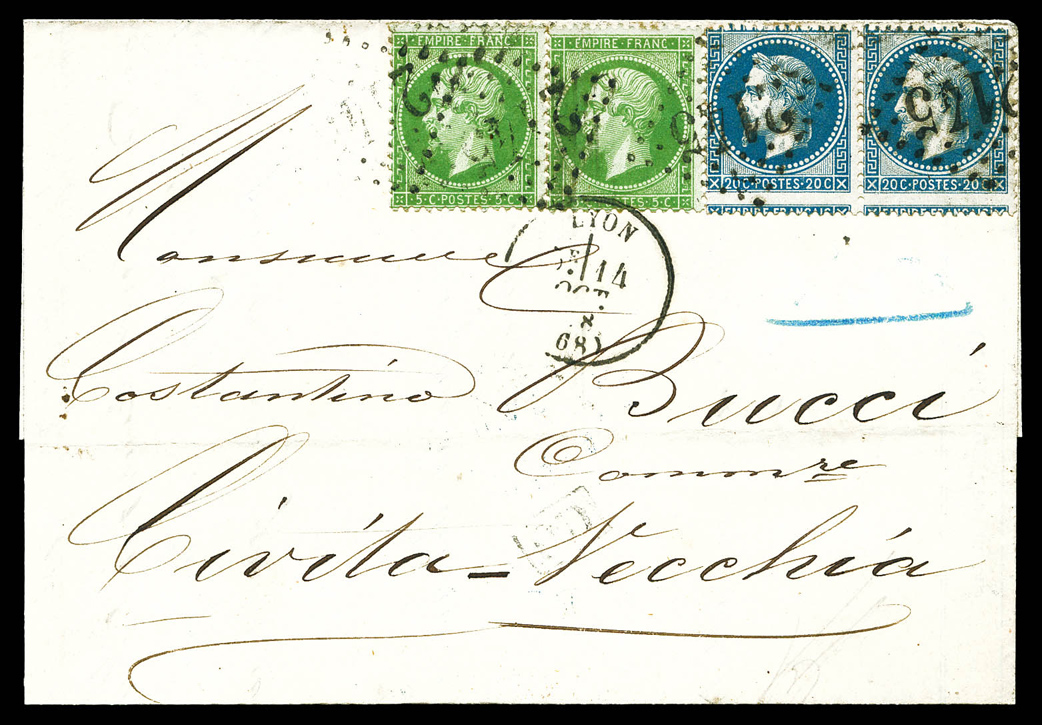 EMPIRE FRANC EMPIRE FRANC
5 C POSTES 5 C 5 C POSTES 5 C 20 C POSTES 20 C 20 C POSTES 20
2145 2145
LYON
14
OCT.
68
Monsieur
Costantino Bucci
Commre
PD
Civita-Vecchia